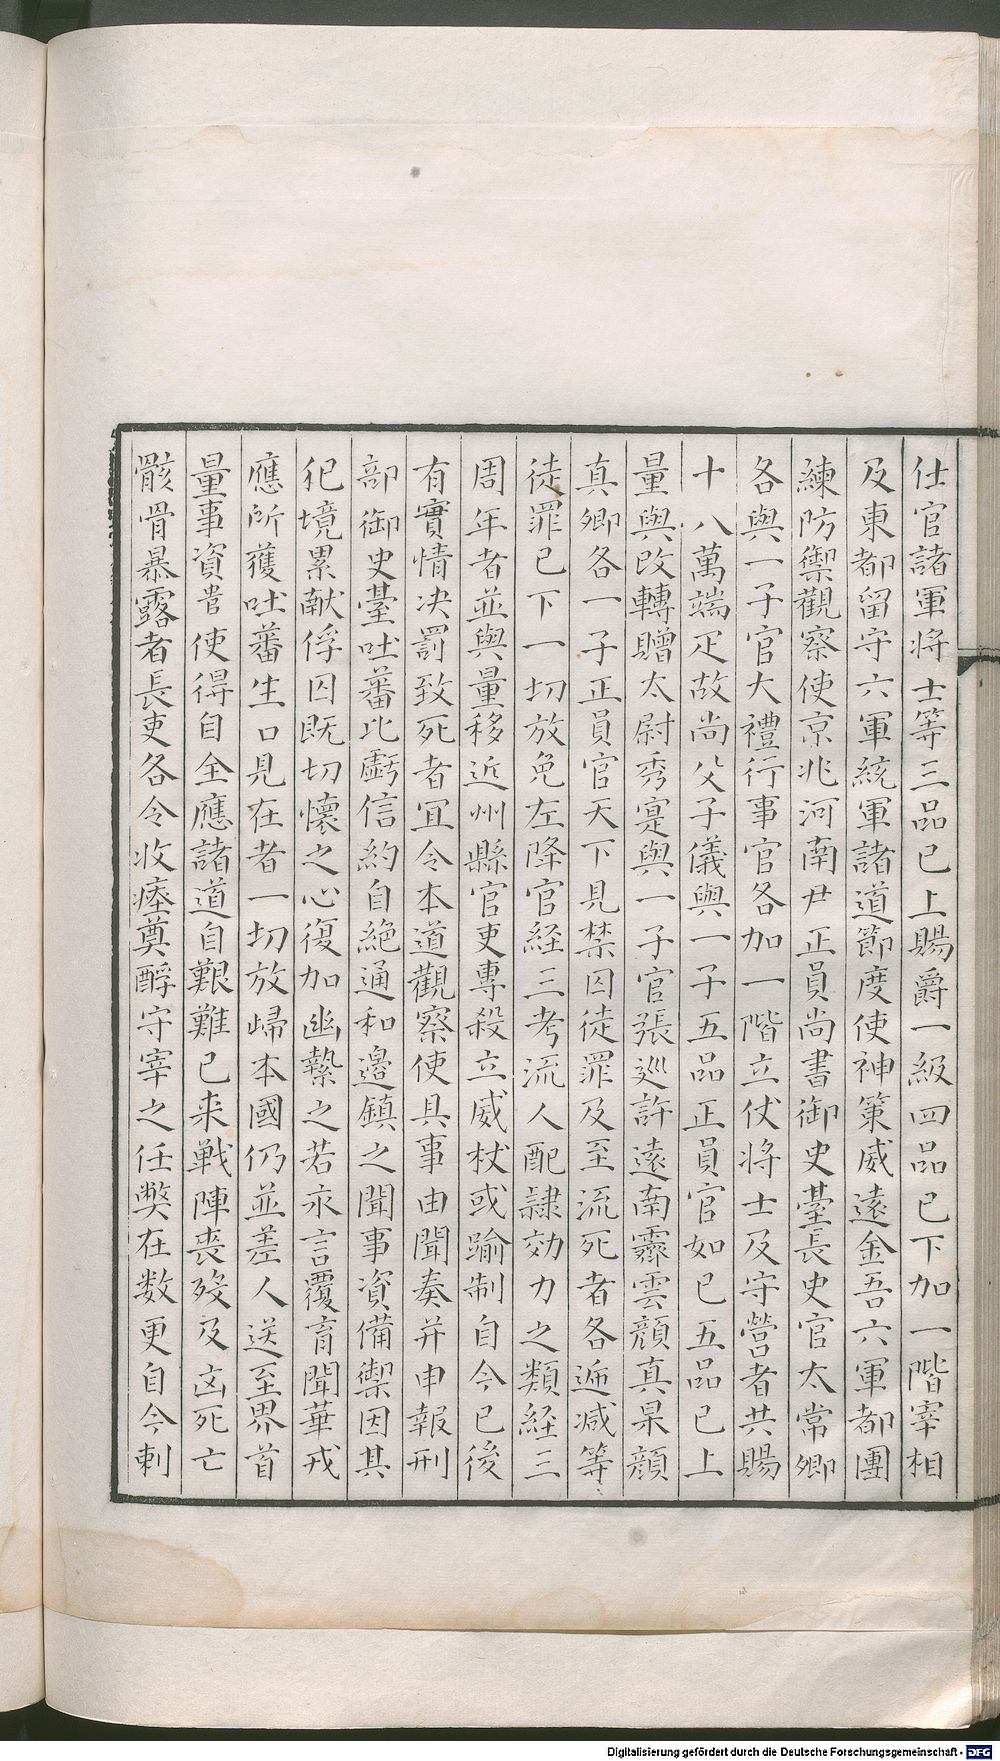 仕官諸軍将士等三品已上賜爵一級四品已下加一階宰相
及東都留守六軍統軍諸道節度使神策威遠金吾六軍都團
練防禦觀察使京兆河南尹正員尚書御史臺長史官太常卿
各與一子官大禮行事官各加一階立仗将士及守營者共賜
十八萬端疋故尚父子儀與一子五品正員官如已五品已上
量與改轉贈太尉秀寔與一子官張巡許遠南霽雲顔真杲顔
真卿各一子正員官天下見禁囚徒罪及至流死者各逓减等
徒罪已下一切放免左降官経三考流人配隷効力之類経三
周年者並與量移近州縣官吏專殺立威杖或踰制自今已後
有實情决罰致死者冝令本道觀察使具事由聞奏并申報刑
部御史臺吐蕃比虧信約自絶通和邉鎮之聞事資備禦因其
犯境累献俘囚既切懷之心復加幽縶之若永言覆育聞華戎
應所獲吐蕃生口見在者一切放歸本國仍並差人送至界首
量事資貲使得自全應諸道自艱難已来戦陣喪殁及凶死亡
骸骨暴露者長吏各令收瘞奠酹守宰之任獘在数更自今刺
Digitalisierung gefördert durch die Deutsche Forschungsgemeinschaft - DFG